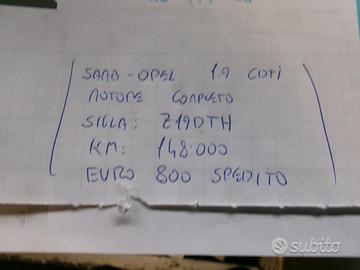 SAAB-OPEL 1.9 CDTI
MOTORE COMPLETO
SIGLA: Z19DTH
KM: 148.000
EURO 800 SPEDITO
subito